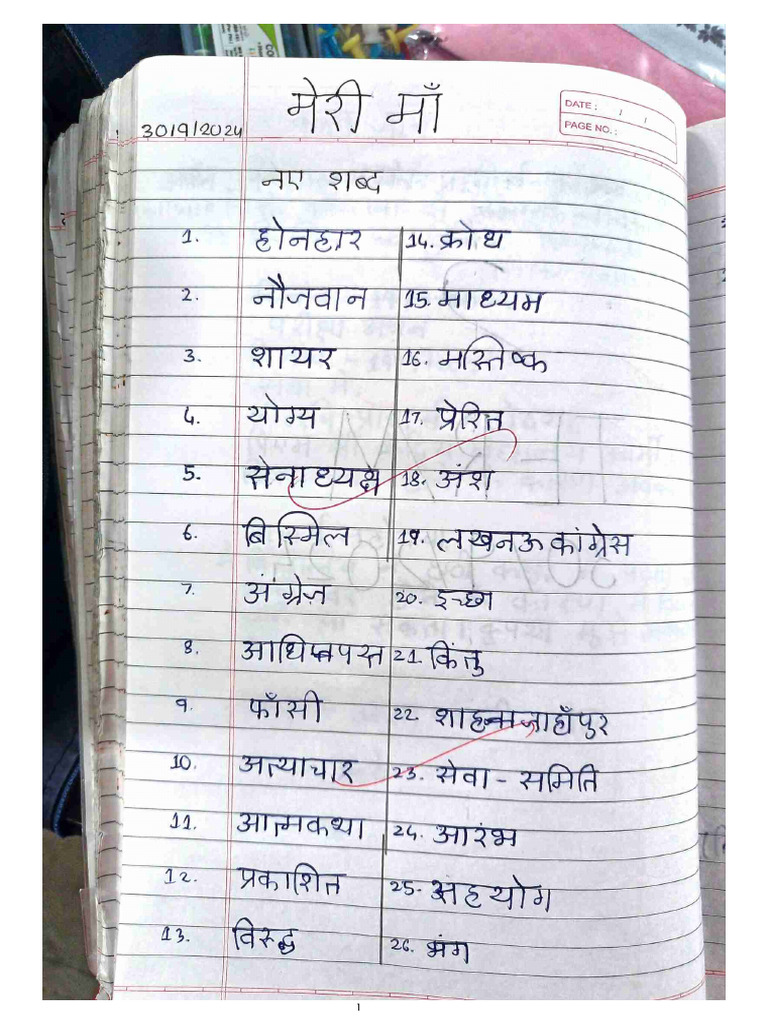 मेरी माँ
DATE : / /
PAGE NO. :
30/9/2024
नए शब्द
1. होनहार
2. नौजवान
3. शायर
4. योग्य
5. सेनाध्यक्ष
6. बिस्मिल
7. अंग्रेज़
8.
9. फाँसी
10. अत्याचार
11. आत्मकथा
12. प्रकाशित
13. विरुद्ध
14. क्रोध
15. माध्यम
16. मस्तिष्क
17. प्रेरित
18. अंश
19. लखनऊ कांग्रेस
20. इच्छा
21. किंतु
22.
23. सेवा - समिति
24. आरंभ
25. सहयोग
26. भंग
1